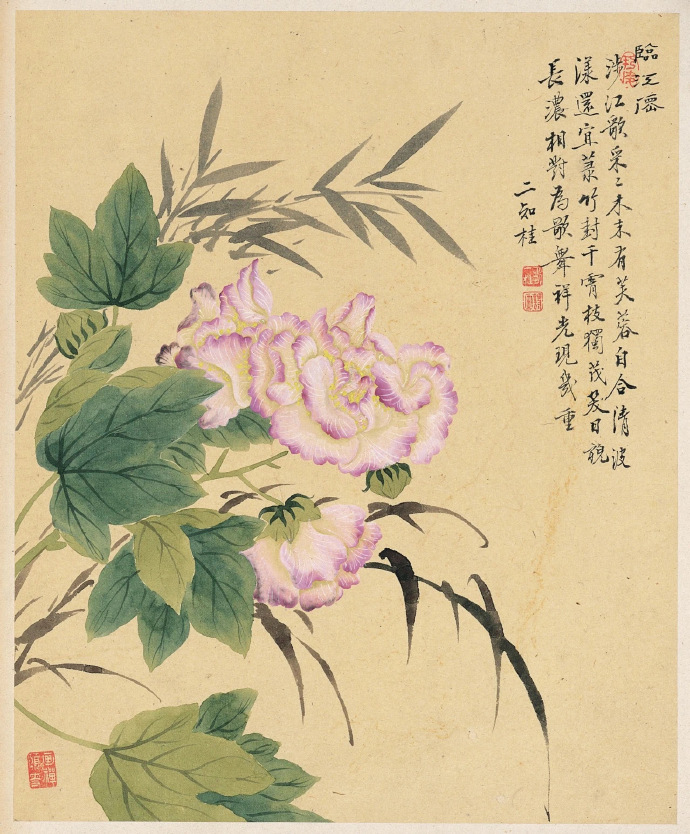 臨江僊
涉江歌采〻木末有芙蓉自合清波
漾還宜菉竹封千霄枝獨茂炎日貌
長濃相對為歌舞祥光現幾重
二知桂